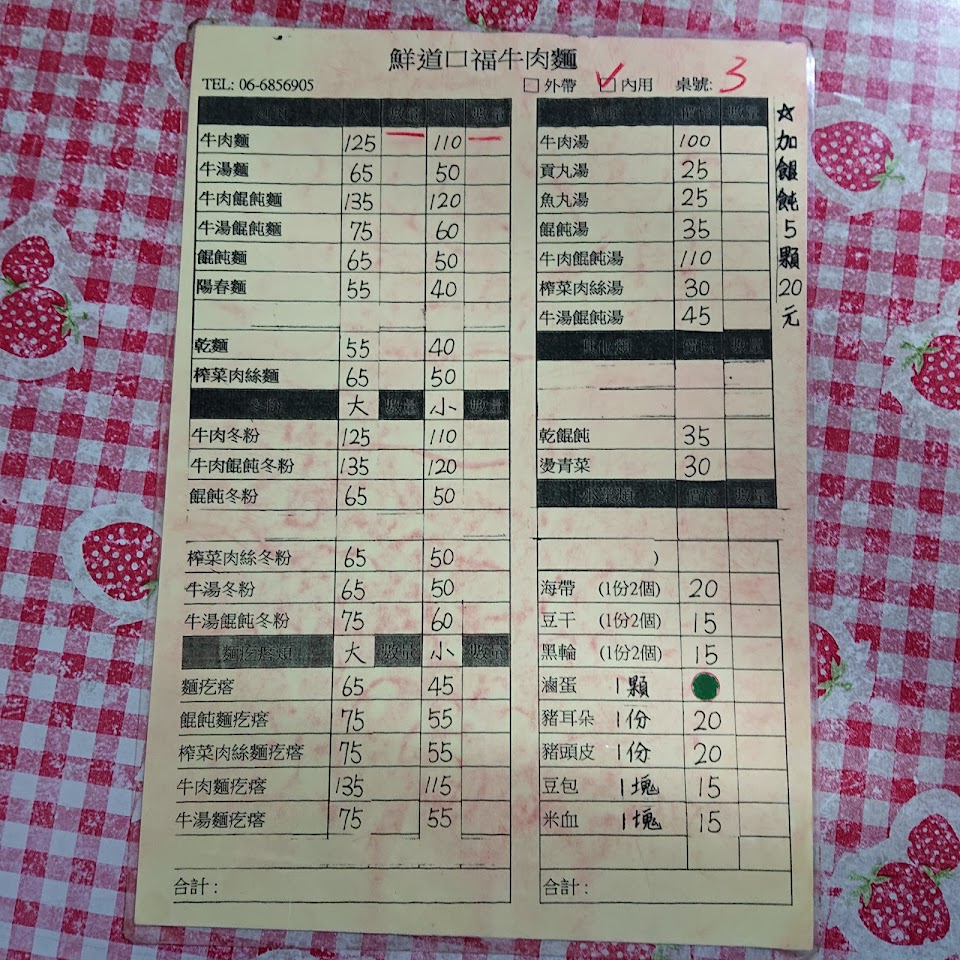 鮮道口福牛肉麵
TEL: 06-6856905
□外帶 ☑內用 桌號: 3
大 數量 小 數量
牛肉麵 125 110
牛湯麵 65 50
牛肉餛飩麵 135 120
牛湯餛飩麵 75 60
餛飩麵 65 50
陽春麵 55 40
乾麵 55 40
榨菜肉絲麵 65 50
冬粉 大 數量 小 數量
牛肉冬粉 125 110
牛肉餛飩冬粉 135 120
餛飩冬粉 65 50
榨菜肉絲冬粉 65 50
牛湯冬粉 65 50
牛湯餛飩冬粉 75 60
麵疙瘩類 大 數量 小 數量
麵疙瘩 65 45
餛飩麵疙瘩 75 55
榨菜肉絲麵疙瘩 75 55
牛肉麵疙瘩 135 115
牛湯麵疙瘩 75 55
合計：
價格 數量
牛肉湯 100
貢丸湯 25
魚丸湯 25
餛飩湯 35
牛肉餛飩湯 110
榨菜肉絲湯 30
牛湯餛飩湯 45
其他類 價格 數量
乾餛飩 35
燙青菜 30
小菜類 價格 數量
)
海帶 (1份2個) 20
豆干 (1份2個) 15
黑輪 (1份2個) 15
滷蛋 1顆
豬耳朵 1份 20
豬頭皮 1份 20
豆包 1塊 15
米血 1塊 15
合計：
☆加餛飩5顆20元